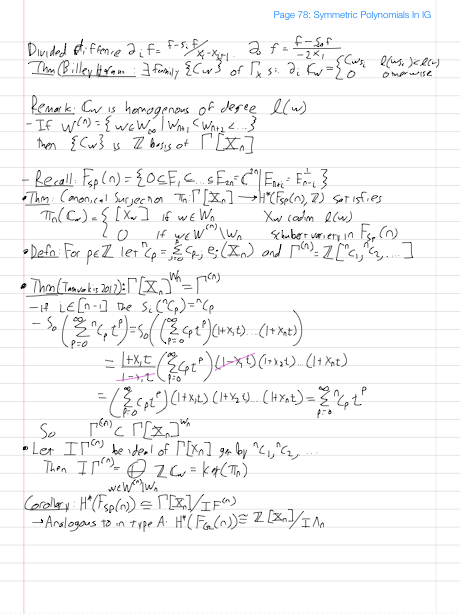 Page 78: Symmetric Polynomials In IG
Divided diffence ∂_i f = f-s_i f / x_i-x_{i+1}. ∂_0 f = f-s_0 f / -2x_1
Thm (Billey Haiman: ∃ family {C_w} of Γ_x s.t. ∂_i C_w = { C_{ws_i} l(ws_i)<l(w)
0 otherwise
Remark: C_w is homogenous of degree l(w)
- If W^{(n)} = {w∈W_∞ | w_{n+1} < w_{n+2} < ...}
then {C_w} is ℤ basis of Γ[X_n]
- Recall: F_{Sp}(n) = {0⊆E_1⊂...⊆E_{2n}=ℂ^{2n} | E_{n+i} = E_{n-i}^⊥}
• Thm: Canonical Surjection π_n: Γ[X_n] → H*(F_{Sp}(n), ℤ) satisfies
π_n(C_w) = { [X_w] if w∈W_n X_w codim l(w)
0 if w∈W^{(n)}\W_n Schubert variety in F_{Sp}(n)
• Defn: For p∈ℤ let ^nC_p = Σ_{j=0}^p C_{p-j} e_j(X_n) and Γ^{(n)} = ℤ[^nC_1, ^nC_2, ....]
• Thm (Tamvakis 2017): Γ[X_n]^{W_n} = Γ^{(n)}
- if i∈[n-1] the s_i(^nC_p) = ^nC_p
- s_0(Σ_{p=0}^∞ ^nC_p t^p) = s_0((Σ_{p=0}^∞ C_p t^p)(1+x_1t)....(1+x_nt))
= 1+x_1t / 1-x_1t (Σ_{p=0}^∞ C_p t^p)(1-x_1t)(1+x_2t)...(1+x_nt)
= (Σ_{p=0}^∞ C_p t^p)(1+x_1t)(1+x_2t)...(1+x_nt) = Σ_{p=0}^∞ ^nC_p t^p
So Γ^{(n)} ⊂ Γ[X_n]^{W_n}
• Let IΓ^{(n)} be ideal of Γ[X_n] gen by ^nC_1, ^nC_2, ...
Then IΓ^{(n)} = ⊕ ℤ C_w = ker(π_n)
w∈W^{(n)}\W_n
Corollary: H*(F_{Sp}(n)) ≅ Γ[X_n]/IΓ^{(n)}
→ Analogous to in type A: H*(F_{GL}(n)) ≅ ℤ[X_n]/IΛ_n